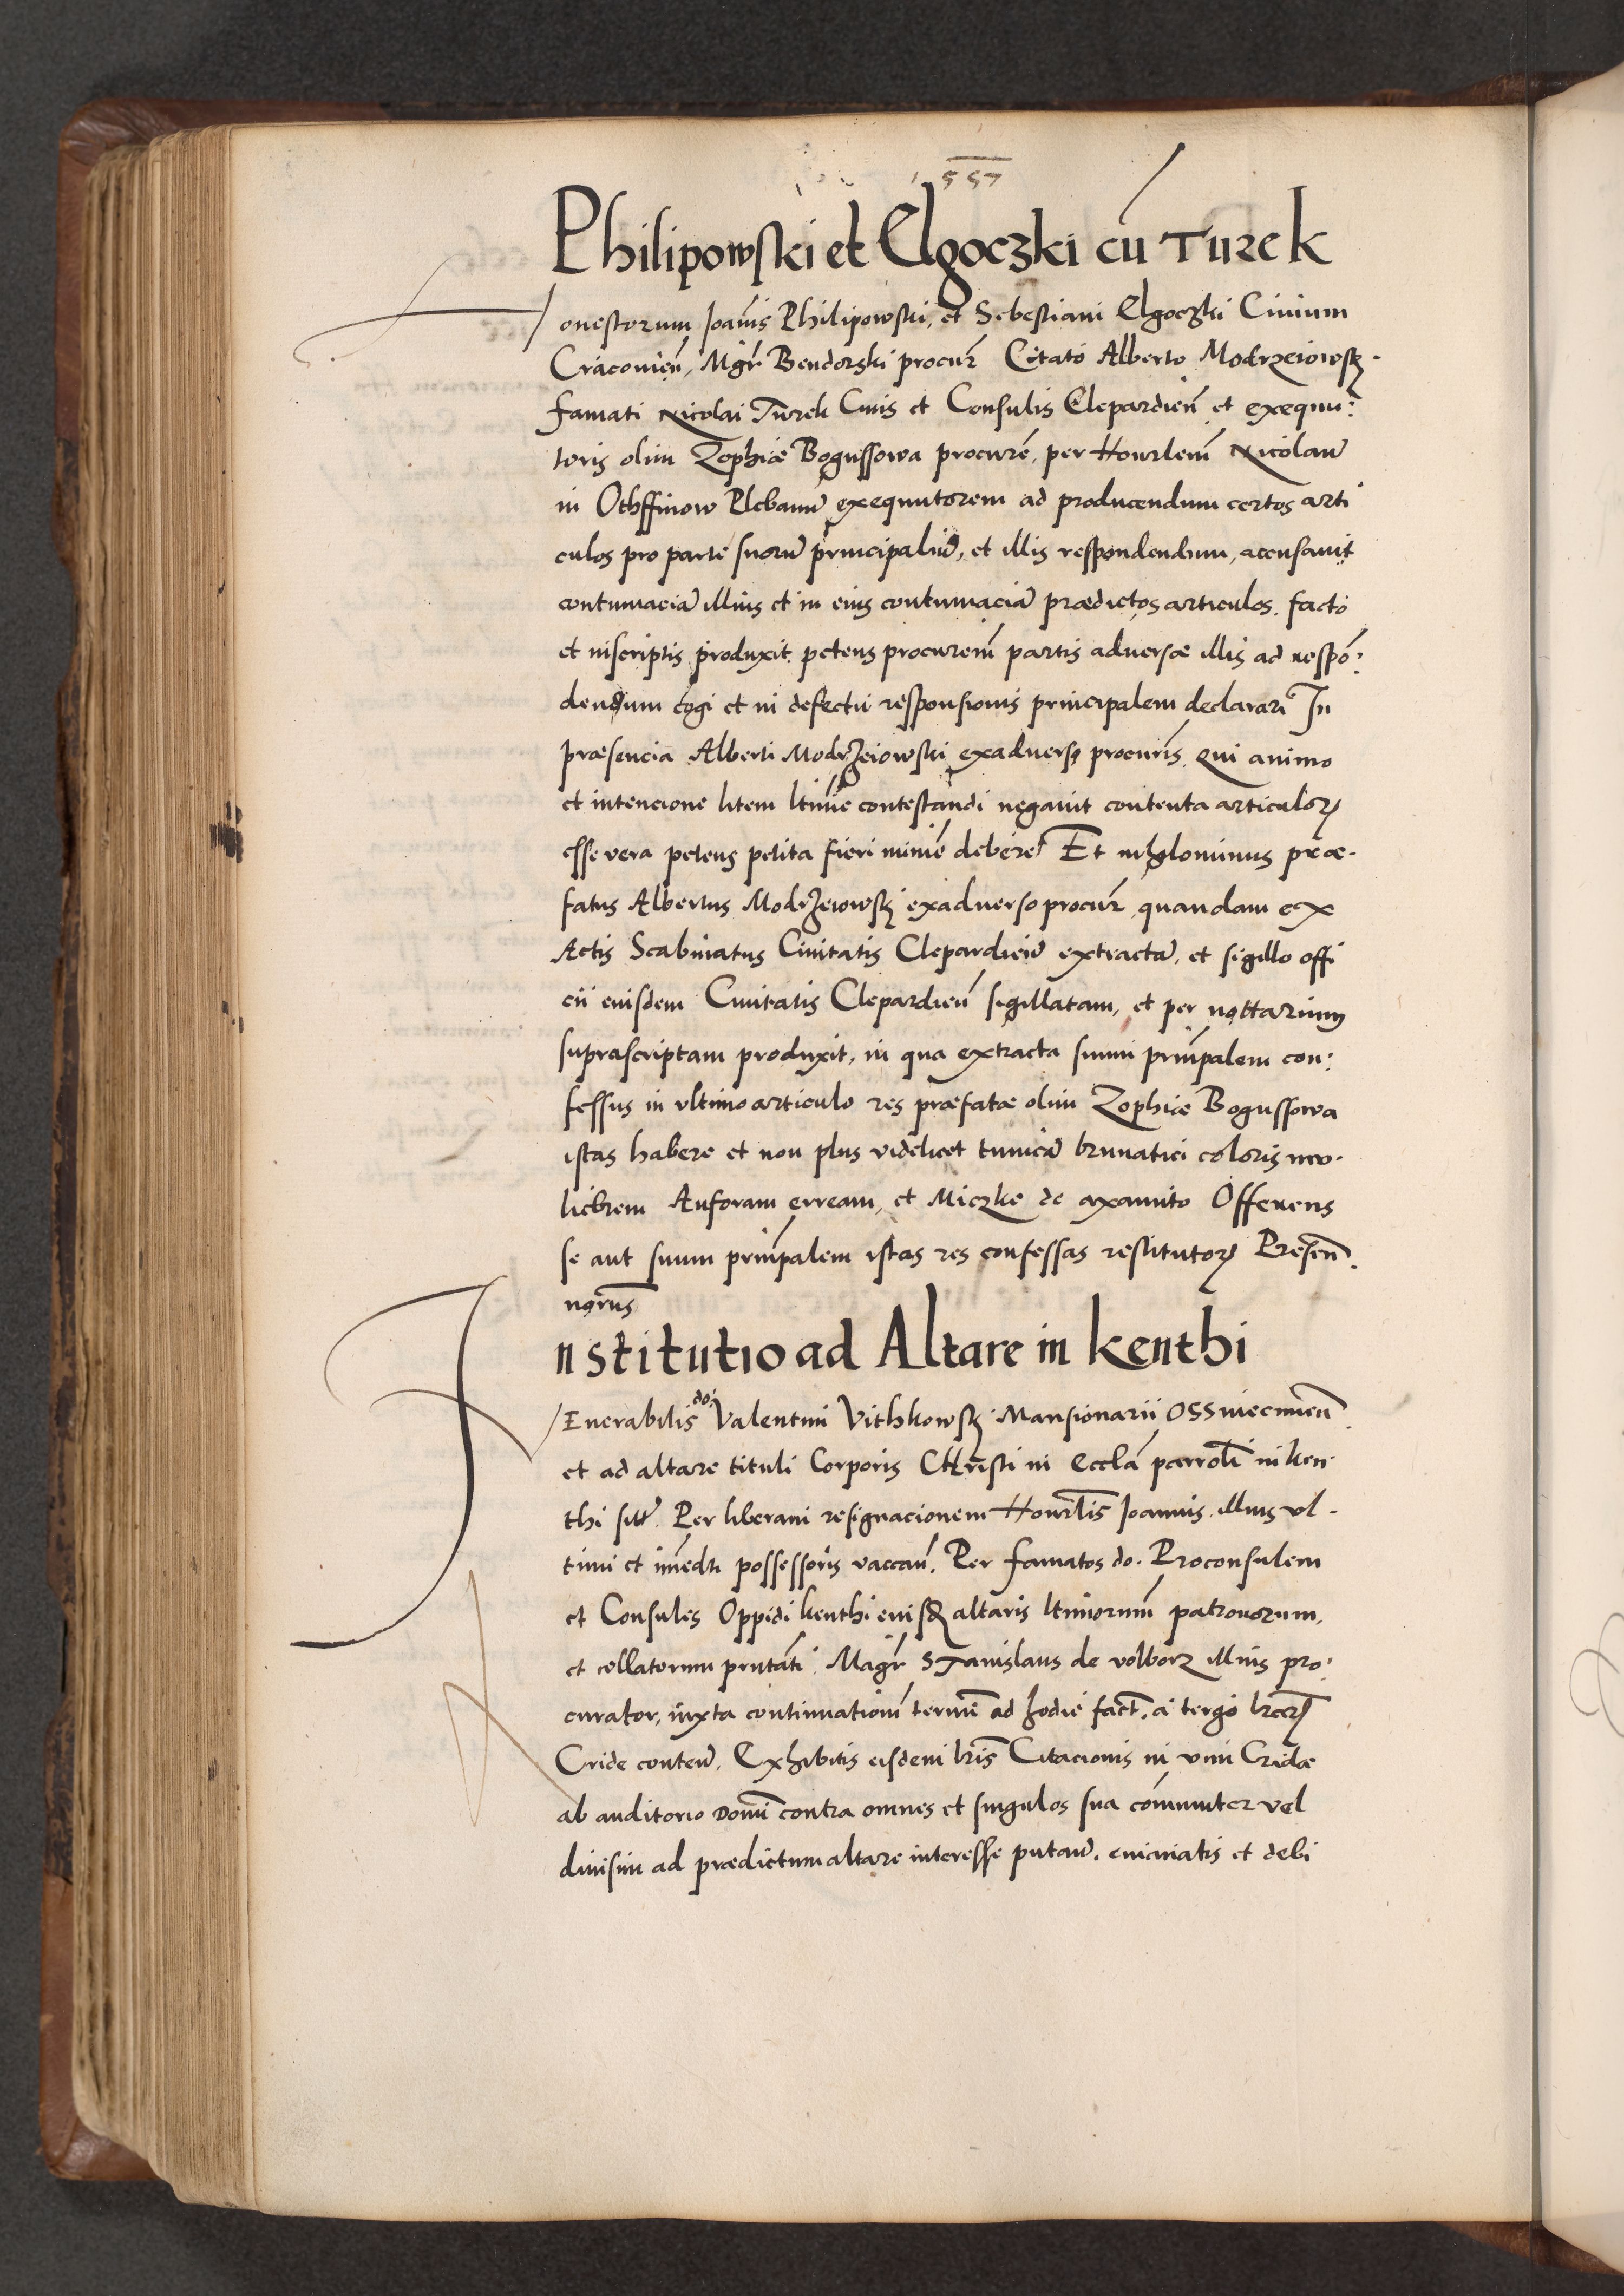 1557
Philipowski et Elgoczki cū Turek
Honestorum Joānis Philipowski, et Sebestiani Elgoczki Ciuium
Cracouień, Mgr̄ Bendorski procur̄ Citato Alberto Modrzeiowsk̨
famati Nicolai Turek Ciuis et Consulis Clepardień et exequu:
toris olim Zophiæ Bogussowa procurē, per Honrlem̄ Nicolaū
in Othffinow Plebanū exequutorem ad producendum certos arti
culos pro parte suorū principaliū, et illis respondendum, accusauit
contumaciā illius et in eius contumaciā prædictos articulos facto
et inscriptis produxit petens procurem̄ partis aduersæ illis ad respō:
dendum cogi et in defectū responsionis principalem declarari In
præsencia Alberti Modrzeiowski exaduerso procuris̄ Qui animo
et intencione litem ltim̄e contestandi negauit contenta articulorꝝ
esse vera petens petita fieri minimē debere Et nihylominus præ-
fatus Albertus Modrzeiowsk̨ exaduerso procur̄ quandam ex
Actis Scabinatus Ciuitatis Clepardień extractā, et sigillo offi
cii eiusdem Ciuitatis Clepardień sigillatam, et per nottarium
suprascriptam produxit, in qua extracta suum prin̄palem con:
fessus in vltimo articulo res præfatæ olim Zophiæ Bogussowa
istas habere et non plus videlicet tunicā brunatici coloris mu-
liebrem Anforam erream, et Miczke de axamito Offerens
se aut suum prin̄palem istas res confessas restitutorꝝ Presen̄.
norus̄
Institutio ad Altare in Kenthi
Venerabilis doi: Valentini Vithkowsk̨ Mansionarii OSSwiecimień
et ad altare tituli Corporis CHristi in Ecclā parrolī in ken
thi sitt̄ Per liberam resignacionem Honrlis̄ Joannis illius vl-
timi et im̄edti possessoris vaccań. Per famatos do. Proconsulem
et Consules Oppidi kenthi eiusdꝫ altaris ltimorum̄ patronorum,
et collatorum pn̄tāti Magr̄ STanislaus de volborz illius pro:
curator, iuxta continuationem̄ termī ad hodie fact̄, a tergo lr̄arꝝ
Cride conteń. Exhibitis eisdem lr̄is Citacionis in vim Cridæ
ab auditorio Domī contra omnes et singulos sua cōmuniter vel
diuisim ad prædictum altare interesse putań, emanatis et debi